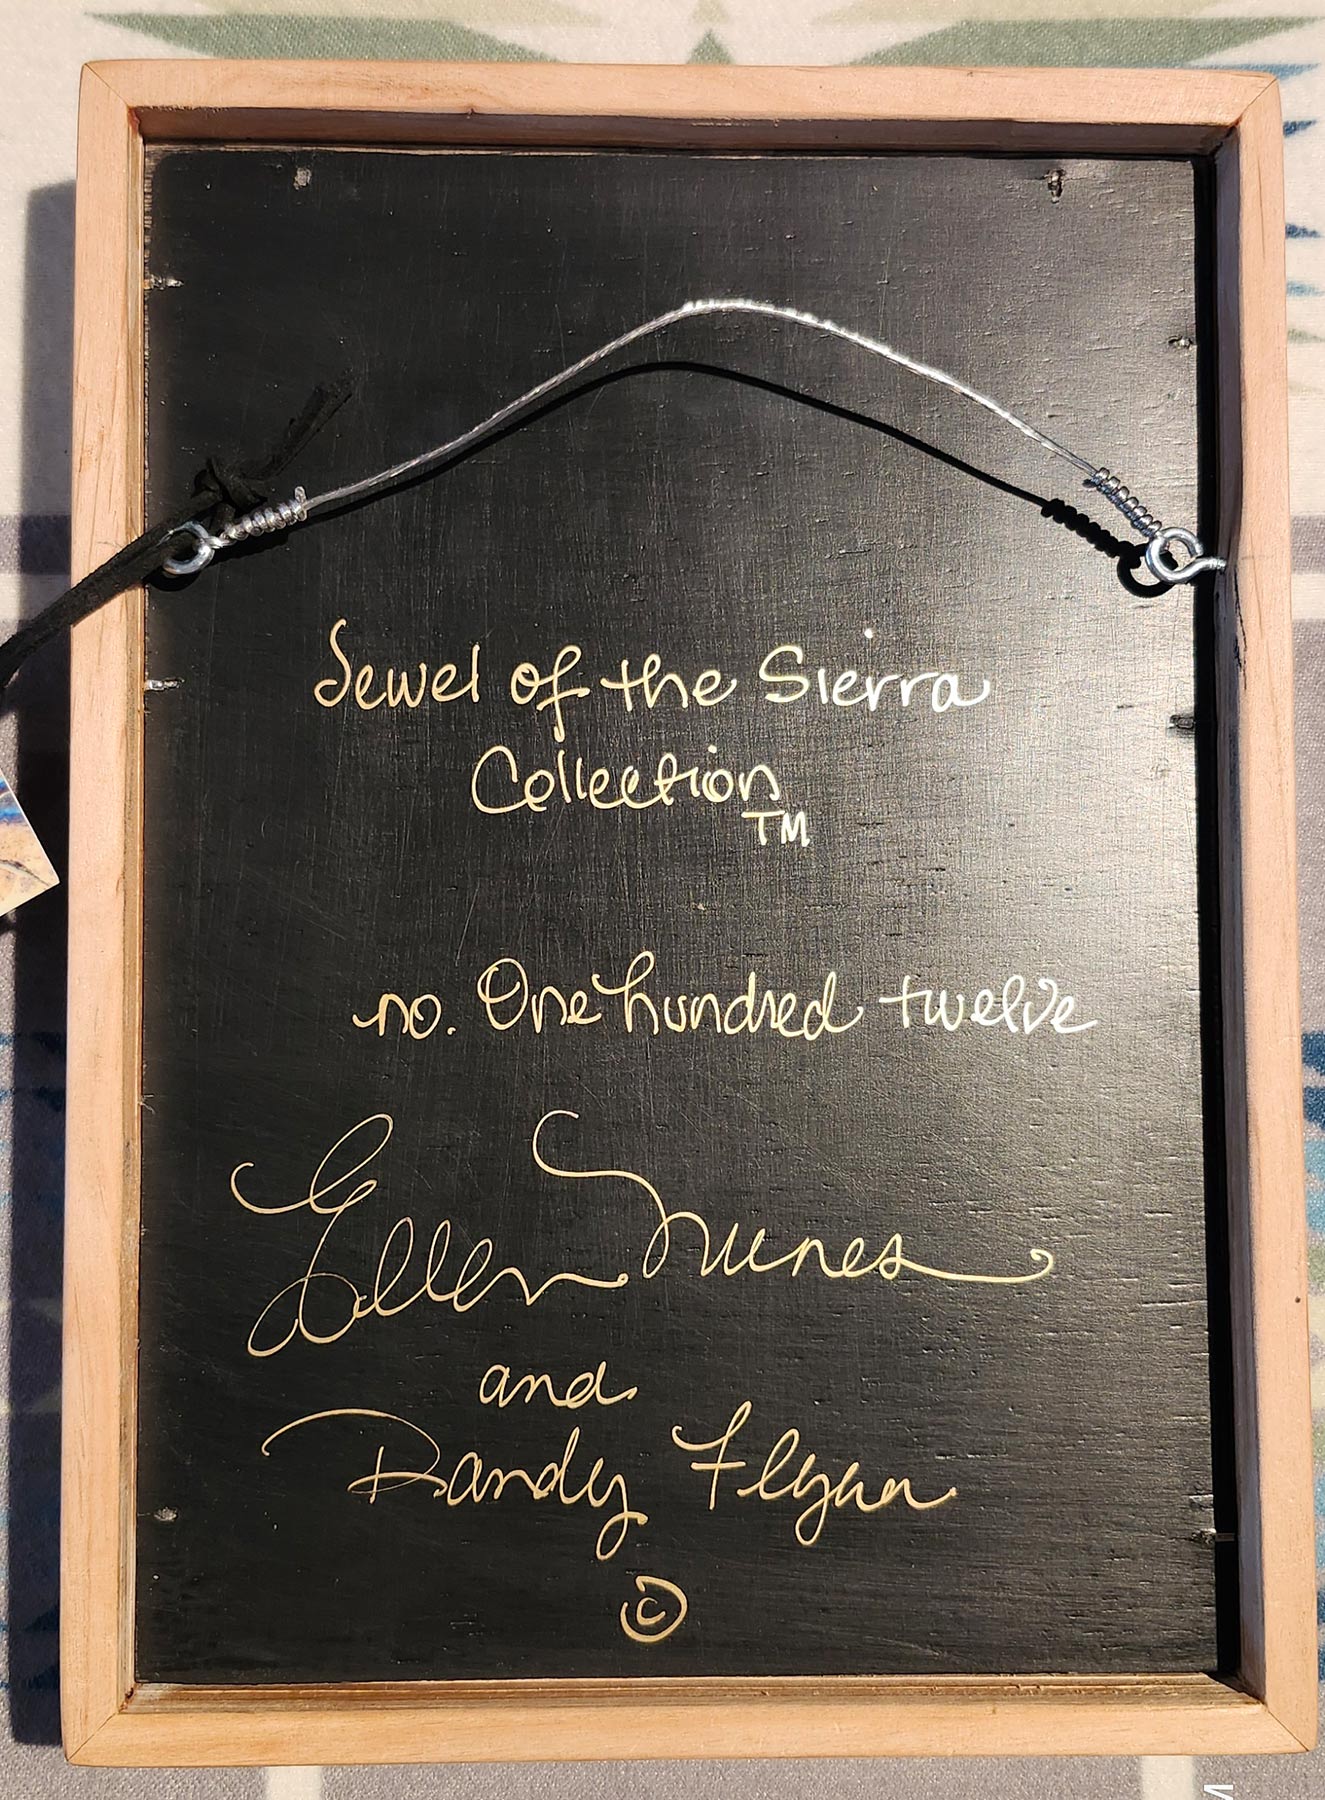 Jewel of the Sierra
Collection
TM
no. One hundred twelve
Ellen Nunes
and
Randy Flynn
©